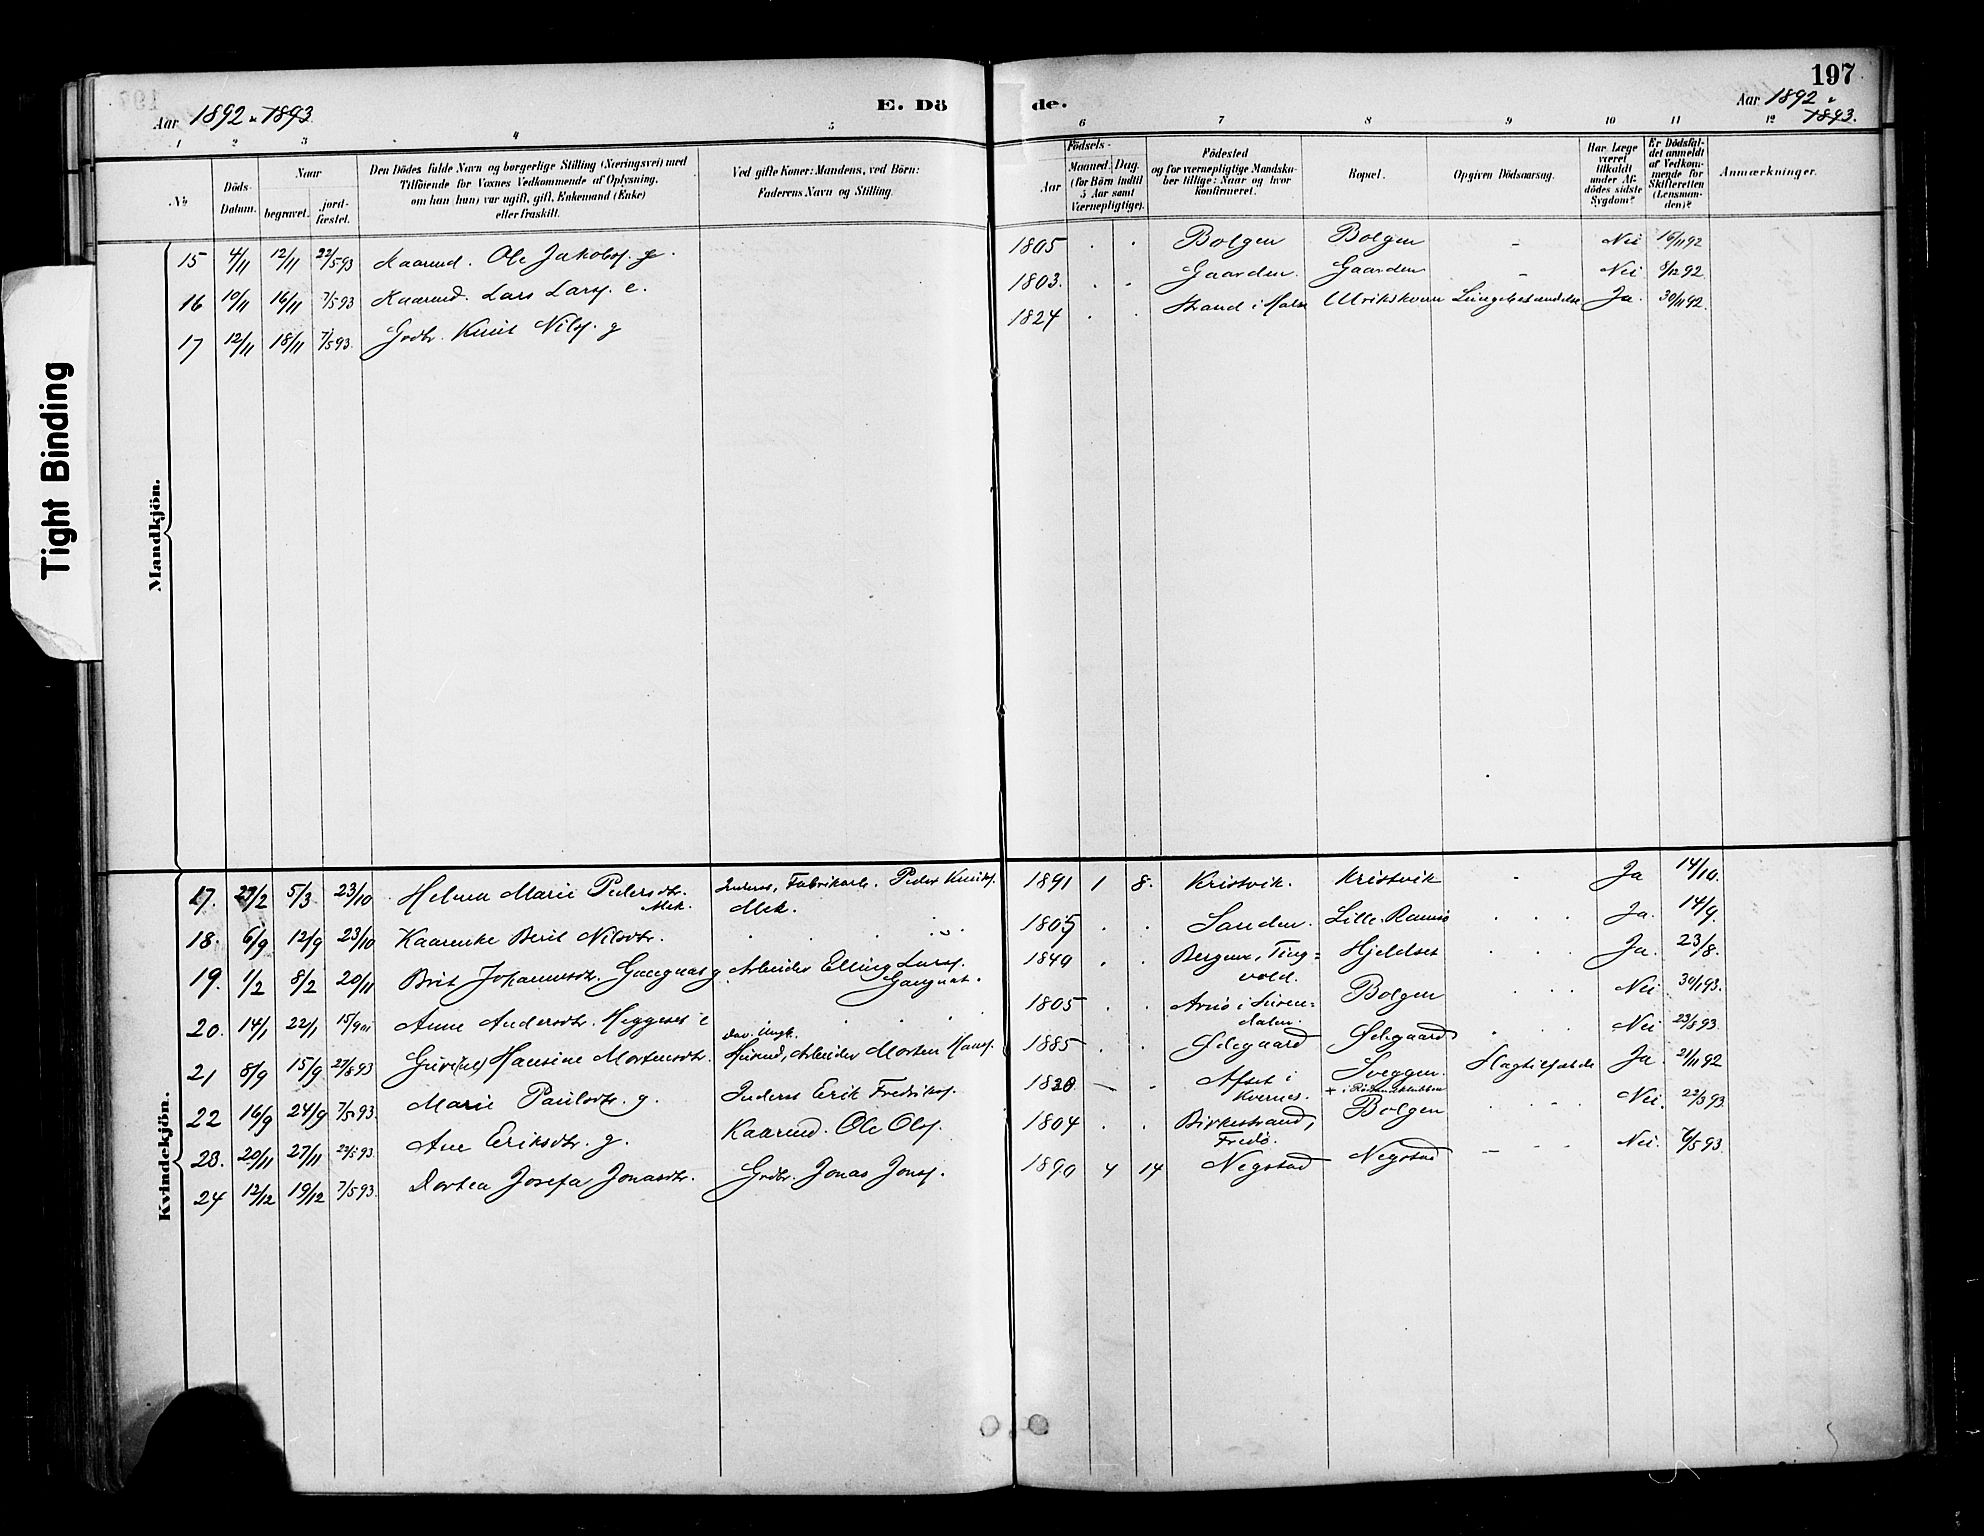 197
Aar 1892 & 1893
E. Dö de.
Aar 1892 &
1893.
1 2 3 4 5 6 7 8 9 10 11 12
№
Döds-
Datum.
Naar
begravet.
jord-
fæstet.
Den Dödes fulde Navn og borgerlige Stilling (Næringsvei) med
Tilföiende for Voxnes Vedkommende af Oplysning,
om han (hun) var ugift, gift, Enkemand (Enke)
eller fraskilt.
Ved gifte Koner: Mandens, ved Börn:
Faderens Navn og Stilling.
Födsels-
Aar
Maaned. Dag.
(for Börn indtil
5 Aar samt
Værnepligtige).
Födested
og for værnepligtige Mandska-
ber tillige: Naar og hvor
konfirmeret.
Bopæl.
Opgiven Dödsaarsag.
Har Læge
været
tilkaldt
under Af-
dödes sidste
Sygdom?
Er Dödsfal-
det anmeldt
af Vedkom-
mende for
Skifteretten
(Lensman-
den)?
Anmærkninger.
Tight Binding
Mandkjön.
15 4/11 12/11 22/5 93 Kaarmd. Ole Jakobs. g. 1805 Bolgen Bolgen - Nei 15/11 92
16 10/11 16/11 7/5 93 Kaarmd. Lars Lars. e. 1803. Gaarden. Gaarden - Nei 8/12 92
17 12/11 18/11 7/5 93. Grdbr. Knut Nils. g 1824 Strand i Ulrikskvern Ja. 30/11 92
Kvindekjön.
17. 27/2 5/3 23/10 Helma Marie Pedersdtr. Mek. Inderst, Fabrikarb. Peder Knuts. Mek. 1891 1 8. Kristvik. Kristvik - Ja 14/10.
18. 6/9 12/9 23/10 Kaarenke Berit Nilsdtr. 1805 Sanden. Lille-Ramsö Ja. 14/9.
19. 1/2 8/2 20/11 Brit Johannesdtr. g. Arbeider Elling Lars. 1840 Bergem, Ting=
vold. Hjeldset Ja. 23/8.
20. 14/1 22/1 15/9 Anne Andersdtr. Heggeset e 1805 Arnö i Suren=
dalen. Bolgen Nei 30/1 93.
21 8/9 15/9 27/8 93 Hansine Mortensdtr. Husmd, Arbeider Morten Hans. 1885 Ødegaard Ødegaard Nei 23/8 93.
22 16/9 24/9 7/5 93. Marie Paulsdtr. g. Inderst Erik Fredriks. 1820 - Afset i
Kvernes. Sveggen. Slagtilfælde Ja. 21/11 92
23. 20/11 27/11 22/5 93. Ane Eriksdtr. g. Kaarmd. Ole Ols. 1804 Birkestrand,
Fredö. Bolgen Nei. 22/3 93
24 12/12 19/12 7/5 93. Dortea Josefa Jonasdtr. Grdbr. Jonas Jons. 1890 4 14 Negstad Negstad - Nei. 7/5 93.